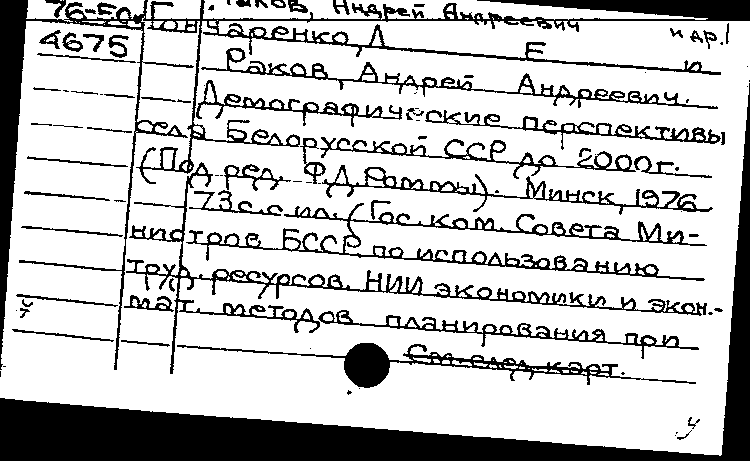 Раков, Андрей Андреевич и др.
76-50
4675
Гончаренко, Л Е и
Раков, Андрей Андреевич.
Демографические перспективы
села Белорусской ССР до 2000г.
(Под ред. Ф.Д.Роммы). Минск, 1976
73с.с ил. (Гос. ком. Совета Ми-
нистров БССР по использованию
труд. ресурсов. НИИ экономики и экон.-
мат. методов планирования при
См. след. карт.
у